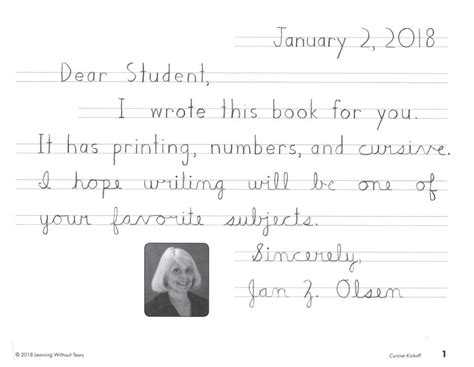 January 2, 2018
Dear Student,
I wrote this book for you.
It has printing, numbers, and cursive.
I hope writing will be one of
your favorite subjects.
Sincerely,
Jan Z. Olsen
© 2018 Learning Without Tears
Cursive Kickoff 1